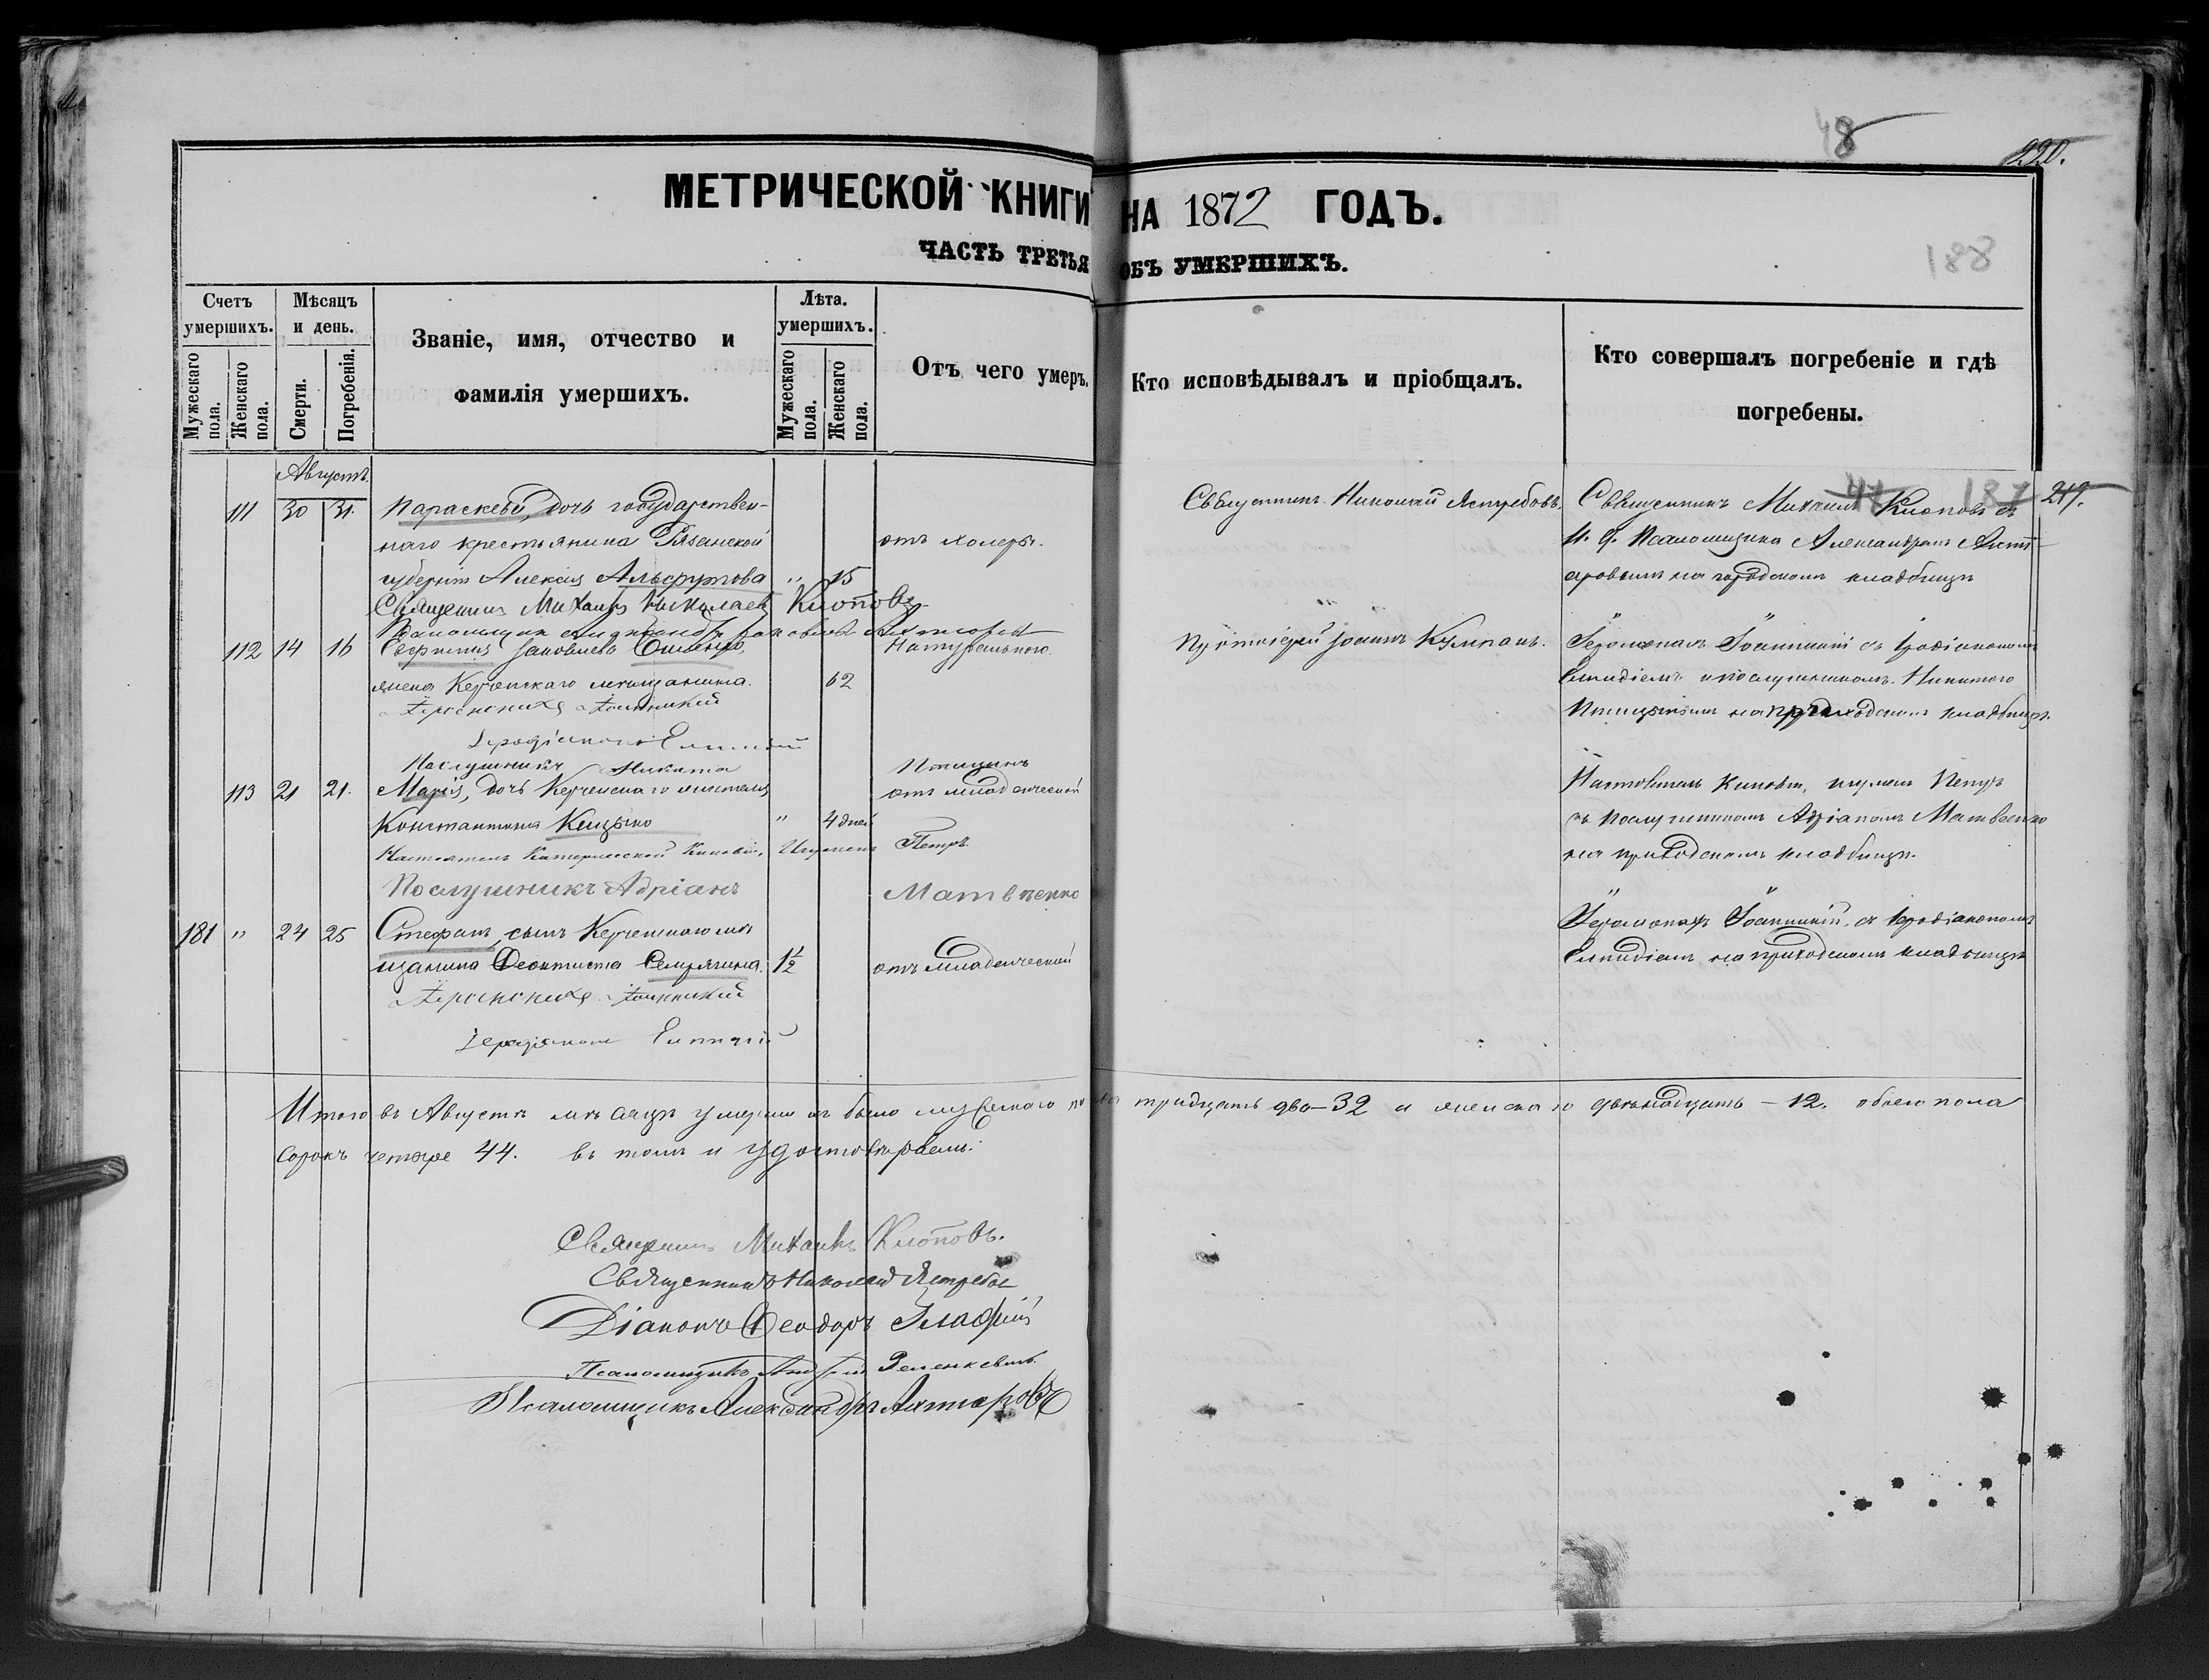 48
220.
МЕТРИЧЕСКОЙ КНИГИ НА 1872 ГОДЪ.
ЧАСТЬ ТРЕТЬЯ ОБЪ УМЕРШИХЪ.
188
Счетъ умершихъ.
Мужескаго пола.
Женскаго пола.
Мѣсяцъ и день.
Смерти.
Погребенія.
Званіе, имя, отчество и
фамилія умершихъ.
Лѣта. умершихъ.
Мужескаго пола.
Женскаго пола.
Отъ чего умеръ.
Кто исповѣдывалъ и пріобщалъ.
Кто совершалъ погребеніе и гдѣ
погребены.
Августъ.
47 187 219.
111 30 31. Параскева, дочь государствен-
наго крестьянина Рязанской
губерніи Алексія " 15
отъ холеры.
Священникъ Николай Ястребовъ.
Священникъ Михаилъ Клоповъ съ
И. д. Псаломщика Александромъ Ахт-
аровымъ на городскомъ кладбищѣ
Священникъ Михаилъ Николаевъ Клоповъ
112 14 16 Евфимія Яковлева
жена Керченскаго мещанина. 62
Натурального.
Протоіерей Іоаннъ Кумпанъ.
Іеромонахъ Іоанникій съ Іеродіакономъ
Елпидіемъ и послушникомъ Никитою
Птицынымъ на приходскомъ кладбищѣ.
Іеромонахъ Іоанникій
Іеродіаконъ Елпидій
Послушникъ Никита Птицынъ
113 21 21. Марія, дочь Керченскаго жителя
Константина " 4 дней
отъ младенческой
Настоятель Киновіи, игуменъ Петръ
съ послушникомъ Адріаномъ Матвеенко
на приходскомъ кладбищѣ.
Настоятель Катерлесской Киновіи, Игуменъ Петръ
Послушникъ Адріанъ Матвѣенко
181 " 24 25 Стефанъ, сынъ Керченскаго мѣ-
щанина Феоктиста 1½
отъ младенческой
Іеромонахъ Іоанникій, съ Іеродіакономъ
Елпидіемъ на приходскомъ кладбищѣ
Іеромонахъ Іоанникій
Іеродіаконъ Елпидій
Итого въ Августѣ мѣсяцѣ умершихъ было мужескаго пола тридцать два - 32 и женскаго двѣнадцать - 12. обоего пола
сорокъ четыре 44. въ томъ и удостовѣряемъ:
Священникъ Михаилъ Клоповъ.
Священникъ Николай Ястребов
Діаконъ Феодоръ
Псаломщикъ Андрей Зеленкевичъ.
Псаломщикъ Александръ Ахтаровъ